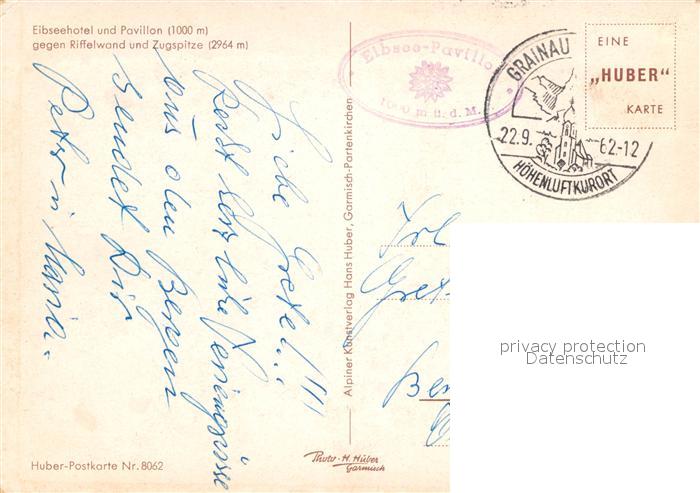 Eibseehotel und Pavillon (1000 m)
gegen Riffelwand und Zugspitze (2964 m)
Liebe Gretel!!!
Recht herzliche Feriengrüsse
aus den Bergen
sendet Dir
Petr u Maria.
Huber-Postkarte Nr. 8062
Alpiner Kunstverlag Hans Huber, Garmisch-Partenkirchen
Photo-H. Huber
Garmisch
Eibsee-Pavillo
1000 m ü. d. M.
GRAINAU
22.9. 62-12
HÖHENLUFTKURORT
EINE
„HUBER"
KARTE
Frl
Gret
Be
privacy protection
Datenschutz